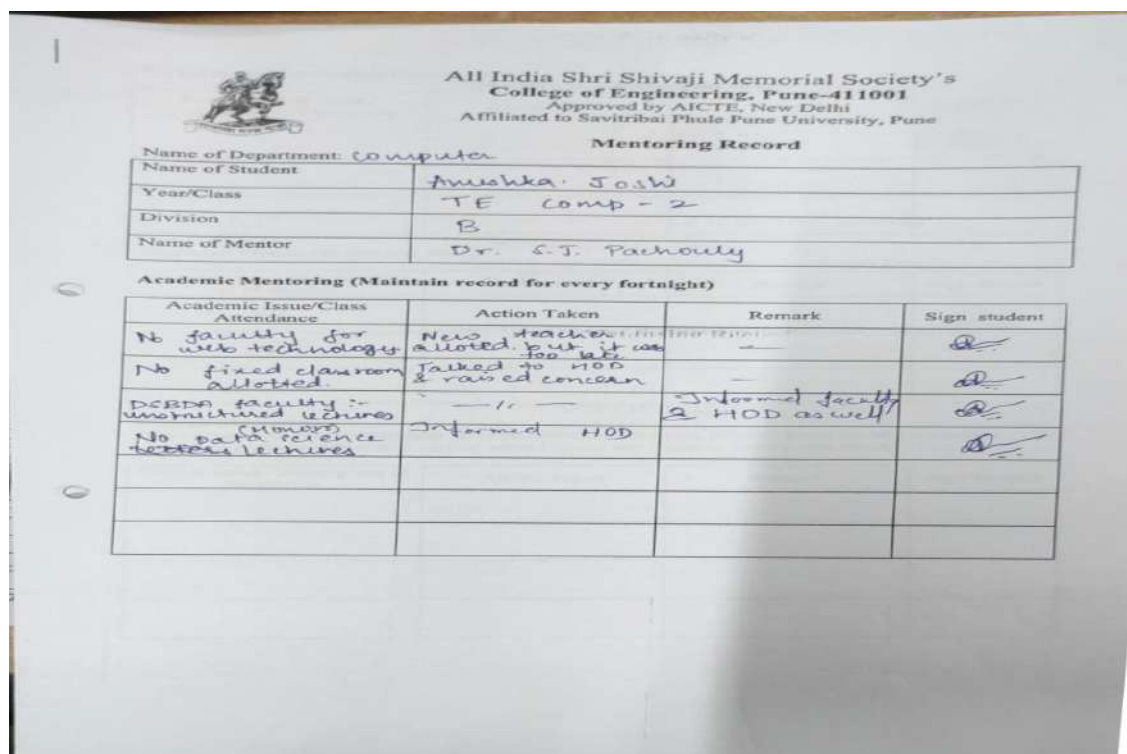 All India Shri Shivaji Memorial Society's
College of Engineering, Pune-411001
Approved by AICTE, New Delhi
Affiliated to Savitribai Phule Pune University, Pune
Mentoring Record
Name of Department: computer
Name of Student Anushka. Joshi
Year/Class TE comp - 2
Division B
Name of Mentor Dr. S.J. Pachouly
Academic Mentoring (Maintain record for every fortnight)
Academic Issue/Class
Attendance
Action Taken
Remark
Sign student
No faculty for
web technology
New teacher
alloted. but it was
too late
—
No fixed classroom
allotted.
Talked to HOD
& raised concern
—
DSBDA faculty :-
unstructured lectures
— 11 —
Informed faculty
& HOD as well
(Honors)
No Data science
lectures
Informed HOD